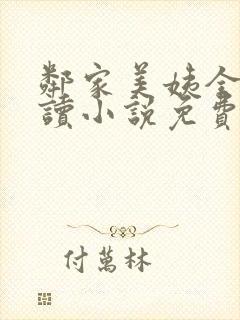 鄰家美姨全
讀小說免費
付萬林